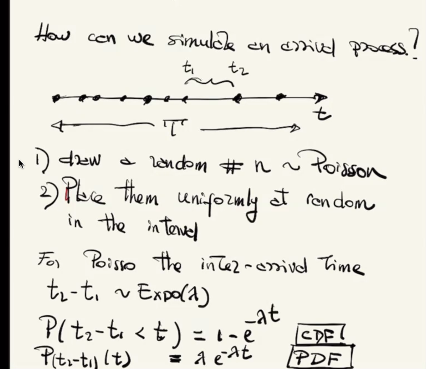 How can we simulate an arrival process?
t₁ t₂
t
T
1) draw a random # n ~ Poisson
2) Place them uniformly at random
in the interval
For Poisso the inter-arrival Time
t₂-t₁ ~ Expo(λ)
P(t₂-t₁ < t) = 1-e^-λt CDF
P(t₂-t₁)(t) = λ e^-λt PDF